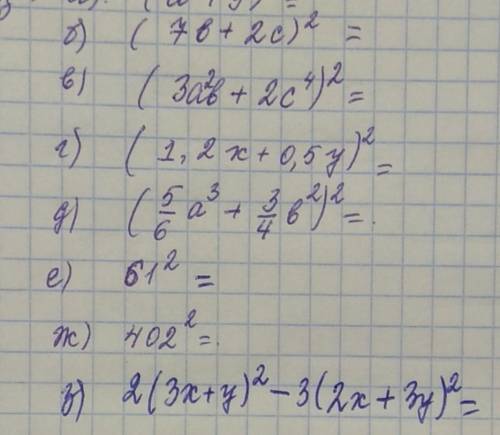 б) ( 7в + 2с)² =
в) ( 3а²в + 2с⁴)² =
г) ( 1,2х + 0,5у)² =
д) (5/6 а³ + 3/4 в²)² =.
е) 61² =
ж) 402² =.
з) 2(3х+у)² – 3(2х + 3у)² =